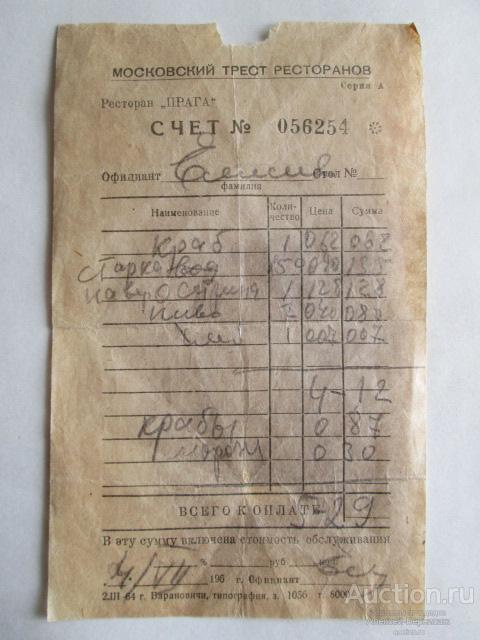 МОСКОВСКИЙ ТРЕСТ РЕСТОРАНОВ
Серия А
Ресторан „ПРАГА"
СЧЕТ № 056254
Официант Стол №
фамилия
Наименование Коли-чество Цена Сумма
Краб 1 062 062
Старка 150
1 128 128
пиво 2 040 080
1 007 007
4-12
Крабы 0 87
0 30
ВСЕГО К ОПЛАТЕ 5-29
В эту сумму включена стоимость обслуживания
% руб. коп.
/VII 196 г. Официант
2.III-64 г. Барановичи, типография, з. 1056 т. 8000
Auction.ru